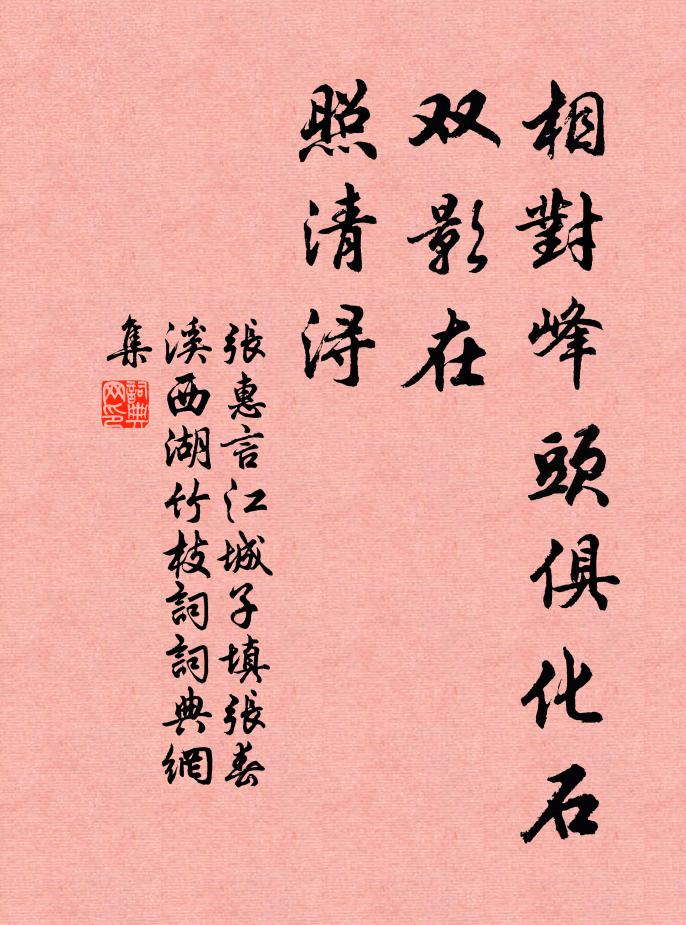 相對峰頭俱化石
双影在
照清浔
張惠言江城子填張春
溪西湖竹枝詞詞典網
集
詞典网印